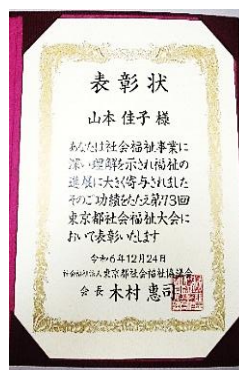 表彰状
山本 佳子 様
あなたは社会福祉事業に
深い理解を示され福祉の
進展に大きく寄与されました
そのご功績をたたえ第73回
東京都社会福祉大会に
おいて表彰いたします
令和6年12月24日
社会福祉法人東京都社会福祉協議会
会長 木村 惠司